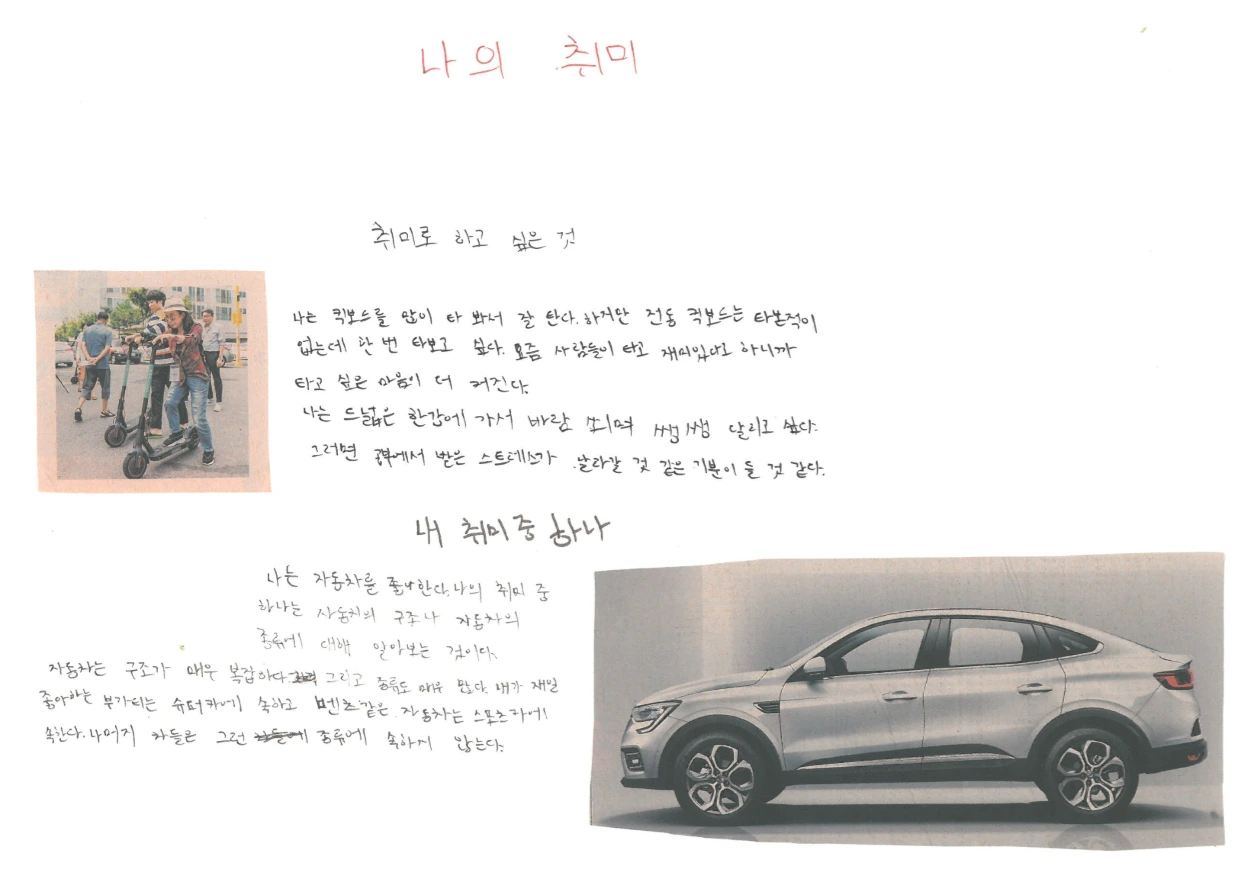 나의 취미
취미로 하고 싶은 것
나는 퀵보드를 많이 타 봐서 잘 탄다. 하지만 전동 퀵보드는 타본적이
없는데 한 번 타보고 싶다. 요즘 사람들이 타고 재미있다고 하니까
타고 싶은 마음이 더 커진다.
나는 드넓은 한강에 가서 바람 쐬며 쌩쌩 달리고 싶다.
그러면 공부에서 받은 스트레스가 날라갈 것 같은 기분이 들 것 같다.
내 취미 중 하나
나는 자동차를 좋아한다. 나의 취미 중
하나는 자동차의 구조나 자동차의
종류에 대해 알아보는 것이다.
자동차는 구조가 매우 복잡하다. 그리고 종류도 매우 많다. 내가 제일
좋아하는 부가티는 슈퍼카에 속하고 벤츠같은 자동차는 스포츠카에
속한다. 나머지 차들은 그런 종류에 속하지 않는다.